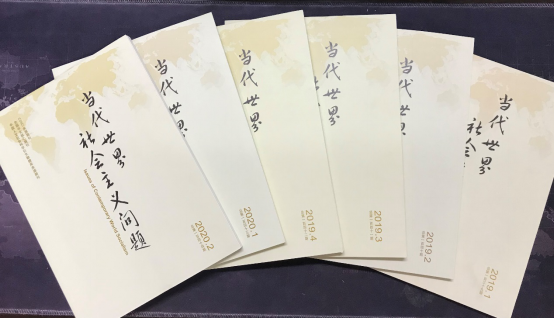 当代世界
社会主义问题
Issues of Contemporary World Socialism
2020.2
当代世界
2020.1
当代世界
2019.4
当代世界
2019.3
当代世界
2019.2
当代世界
社会
2019.1